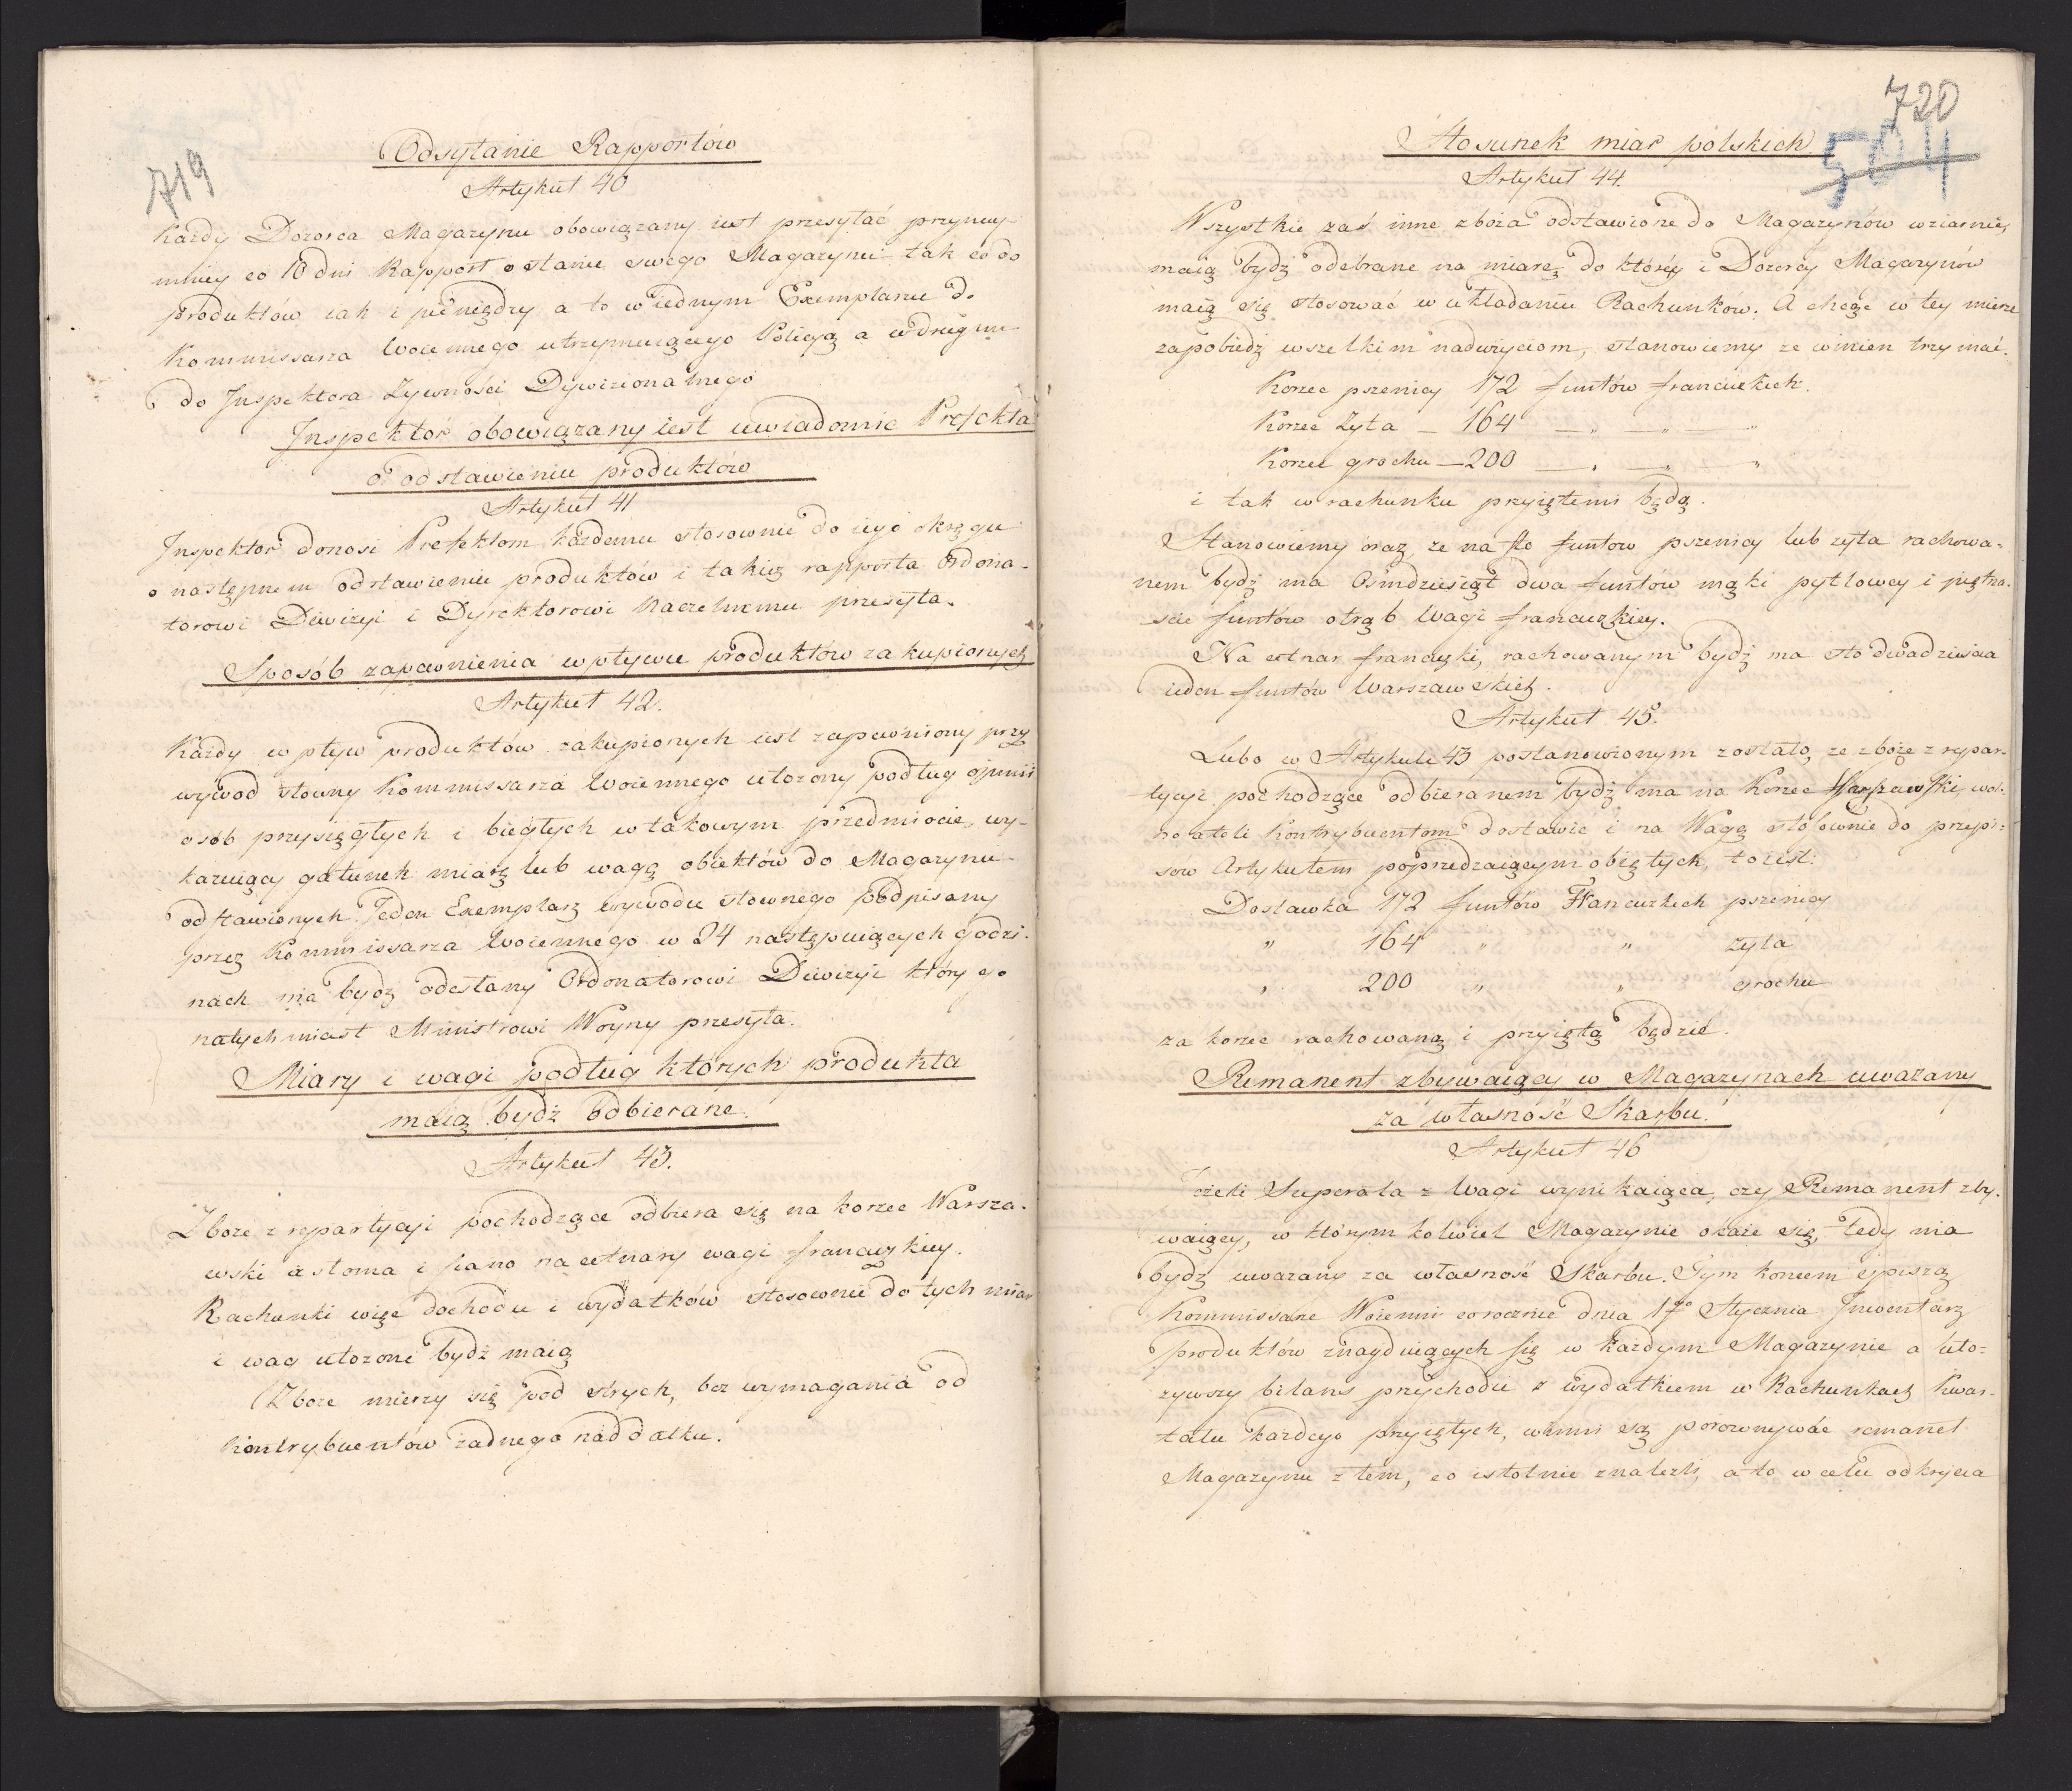 719
Odsyłanie Rapportów
Artykuł 40
Każdy Dozorca Magazynu obowiązany iest przesyłać przynay-
mniey co 10 dni Rapport o stanie swego Magazynu tak co do
produktów iak i pieniędzy a to w iednym Exemplarzu do
Kommissarza Woiennego utrzymuiącego Policyą a w drugim
do Inspektora Żywności Dywizionalnego
Inspektor obowiązany iest uwiadomić Prefekta
o odstawieniu produktów
Artykuł 41
Inspektor donosi Prefektom każdemu stosownie do iego okręgu
o następnem odstawieniu produktów i takież rapporta Ordona-
torowi Diwizyi i Dyrektorowi Naczelnemu przesyła.
Sposób zapewnienia wpływu produktów zakupionych
Artykuł 42.
Każdy wpływ produktów zakupionych iest zapewniony przez
wywod słowny Kommissarza Woiennego ułożony podług opinii
osób przysięgłych i biegłych w takowym przedmiocie, wy-
kazuiący gatunek miarę lub wagę obiektów do Magazynu
odstawionych. Jeden Exemplarz wywodu słownego podpisany
przez Kommissarza Woiennego w 24 następuiących godzi-
nach ma bydź odesłany Ordonatorowi Diwizyi który go
natychmiast Ministrowi Woyny przesyła.
Miary i wagi podług których produkta
maią bydź odbierane.
Artykuł 43.
Zboże z repartycyi pochodzące odbiera się na korzec Warsza-
wski a słoma i siano na cetnary wagi francuzkiey.
Rachunki więc dochodu i wydatków stosownie do tych miar
i wag ułożone bydź maią
Zboże mierzy się pod strych, bez wymagania od
Kontrybuentów żadnego naddatku.
720
504
Stosunek miar polskich
Artykuł 44.
Wszystkie zaś inne zboża odstawione do Magazynów w ziarnie,
maią bydź odebrane na miarę do któréy i Dozorcy Magazynów
maią się stosować w układaniu Rachunków. A chcąc w tey mierze
zapobiedz wszelkim nadużyciom, stanowiemy ze winien trzymać.
Korzec pszenicy 172 funtów francuzkich.
Korzec Żyta — 164 — „ — „ — „
Korzec grochu — 200 — „ — „ — „
i tak w rachunku przyiętemi będą.
Stanowiemy oraz, ze na sto funtow pszenicy lub zyta rachowa-
nem bydź ma Ośmdziesiąt dwa funtów mąki pytlowey i piętna-
scie funtów otrąb Wagi francuzkiey.
Na cetnar francuzki, rachowanym bydź ma sto dwadziescia
ieden funtów Warszawskich.
Artykuł 45.
Lubo w Artykule 43 postanowionym zostało, ze zboże z repar-
tycyi pochodzące odbieranem bydź ma na Korzec Warszawski, wol-
no atoli Kontrybuentom dostawić i na Wagę stosownie do przepi-
sow Artykułem poprzedzaiącym obiętych, to iest:
Dostawka 172 funtów Francuzkich pszenicy
„ 164 „ „ zyta
„ 200 „ „ grochu
za korzec rachowaną i przyiętą będzie.
Remanent zbywaiący w Magazynach uwazany
za własność Skarbu.
Artykuł 46
Jeżeli Superata z Wagi wynikaiąca, czy Remanent zby-
waiący, w którym kolwiek Magazynie okaże się, tedy ma
bydź uwazany za własność Skarbu. Tym koncem spiszą
Kommissarze Woienni corocznie dnia 1go Stycznia Inwentarz
produktów znayduiących się w każdym Magazynie a uło-
żywszy bilans przychodu z wydatkiem w Rachunkach Kwar-
tału każdego przyiętych, winni są porownywać remanet
Magazynu z tem, co istotnie znaleźli, a to w celu odkrycia